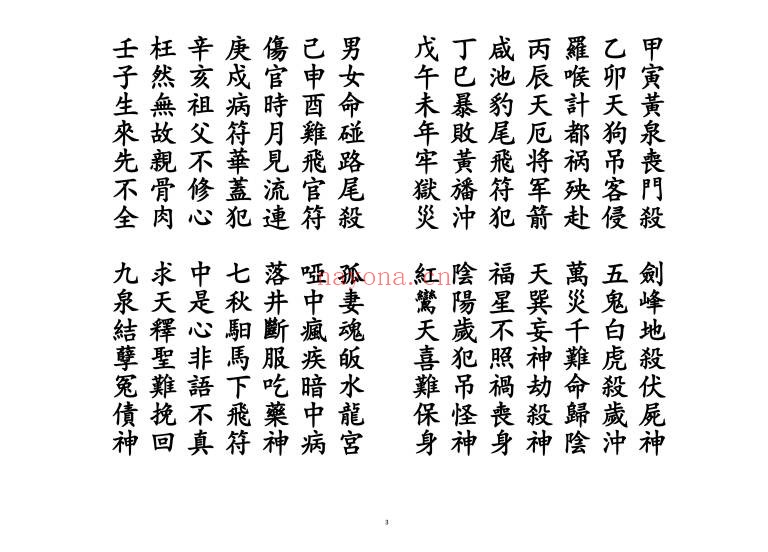 甲寅黃泉喪門殺 劍峰地殺伏屍神
乙卯天狗吊客侵 五鬼白虎殺歲沖
羅喉計都祸殃赴 萬災千難命歸陰
丙辰天厄将军箭 天巽妄神劫殺神
咸池豹尾飛符犯 福星不照禍喪身
丁巳暴敗黃旛沖 陰陽歲犯吊怪神
戊午未年牢獄災 紅鸞天喜難保身
男女命碰路尾殺 孤妻魂皈水龍宮
己申酉雞飛官符 啞中瘋疾暗中病
傷官時月見流連 落井斷服吃藥神
庚戌病符華蓋犯 七秋馹馬下飛符
辛亥祖父不修心 中是心非語不真
枉然無故親骨肉 求天釋聖難挽回
壬子生來先不全 九泉結孽冤債神
havona.cn
3